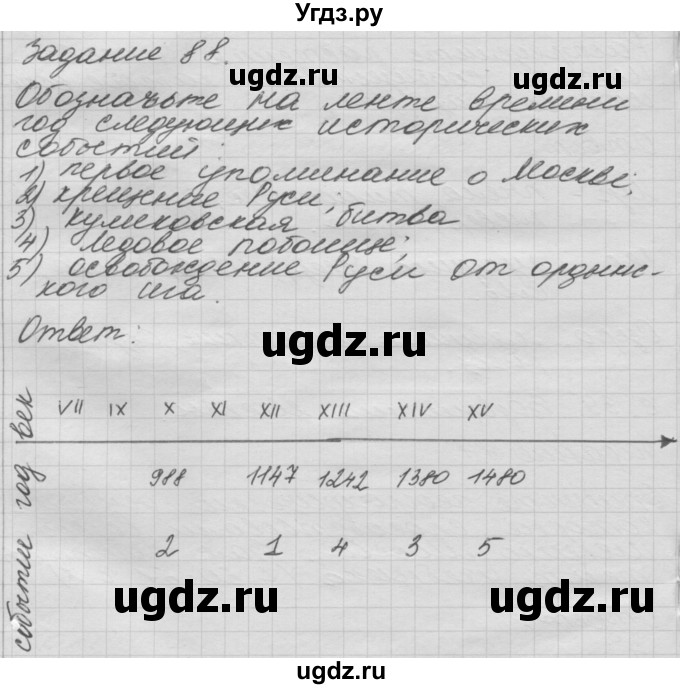 Угдз.ру
Задание 88.
ugdz.ru
Обозначьте на ленте времени
год следующих исторических
событий:
1) первое упоминание о Москве;
2) крещение Руси;
3) Куликовская битва
4) Ледовое побоище;
5) освобождение Руси от ордынс-
кого ига.
ugdz.ru ugdz.ru
Ответ:
век VII IX X XI XII XIII XIV XV
год 988 1147 1242 1380 1480
событие 2 1 4 3 5
ugdz.ru ugdz.ru
ugdz.ru